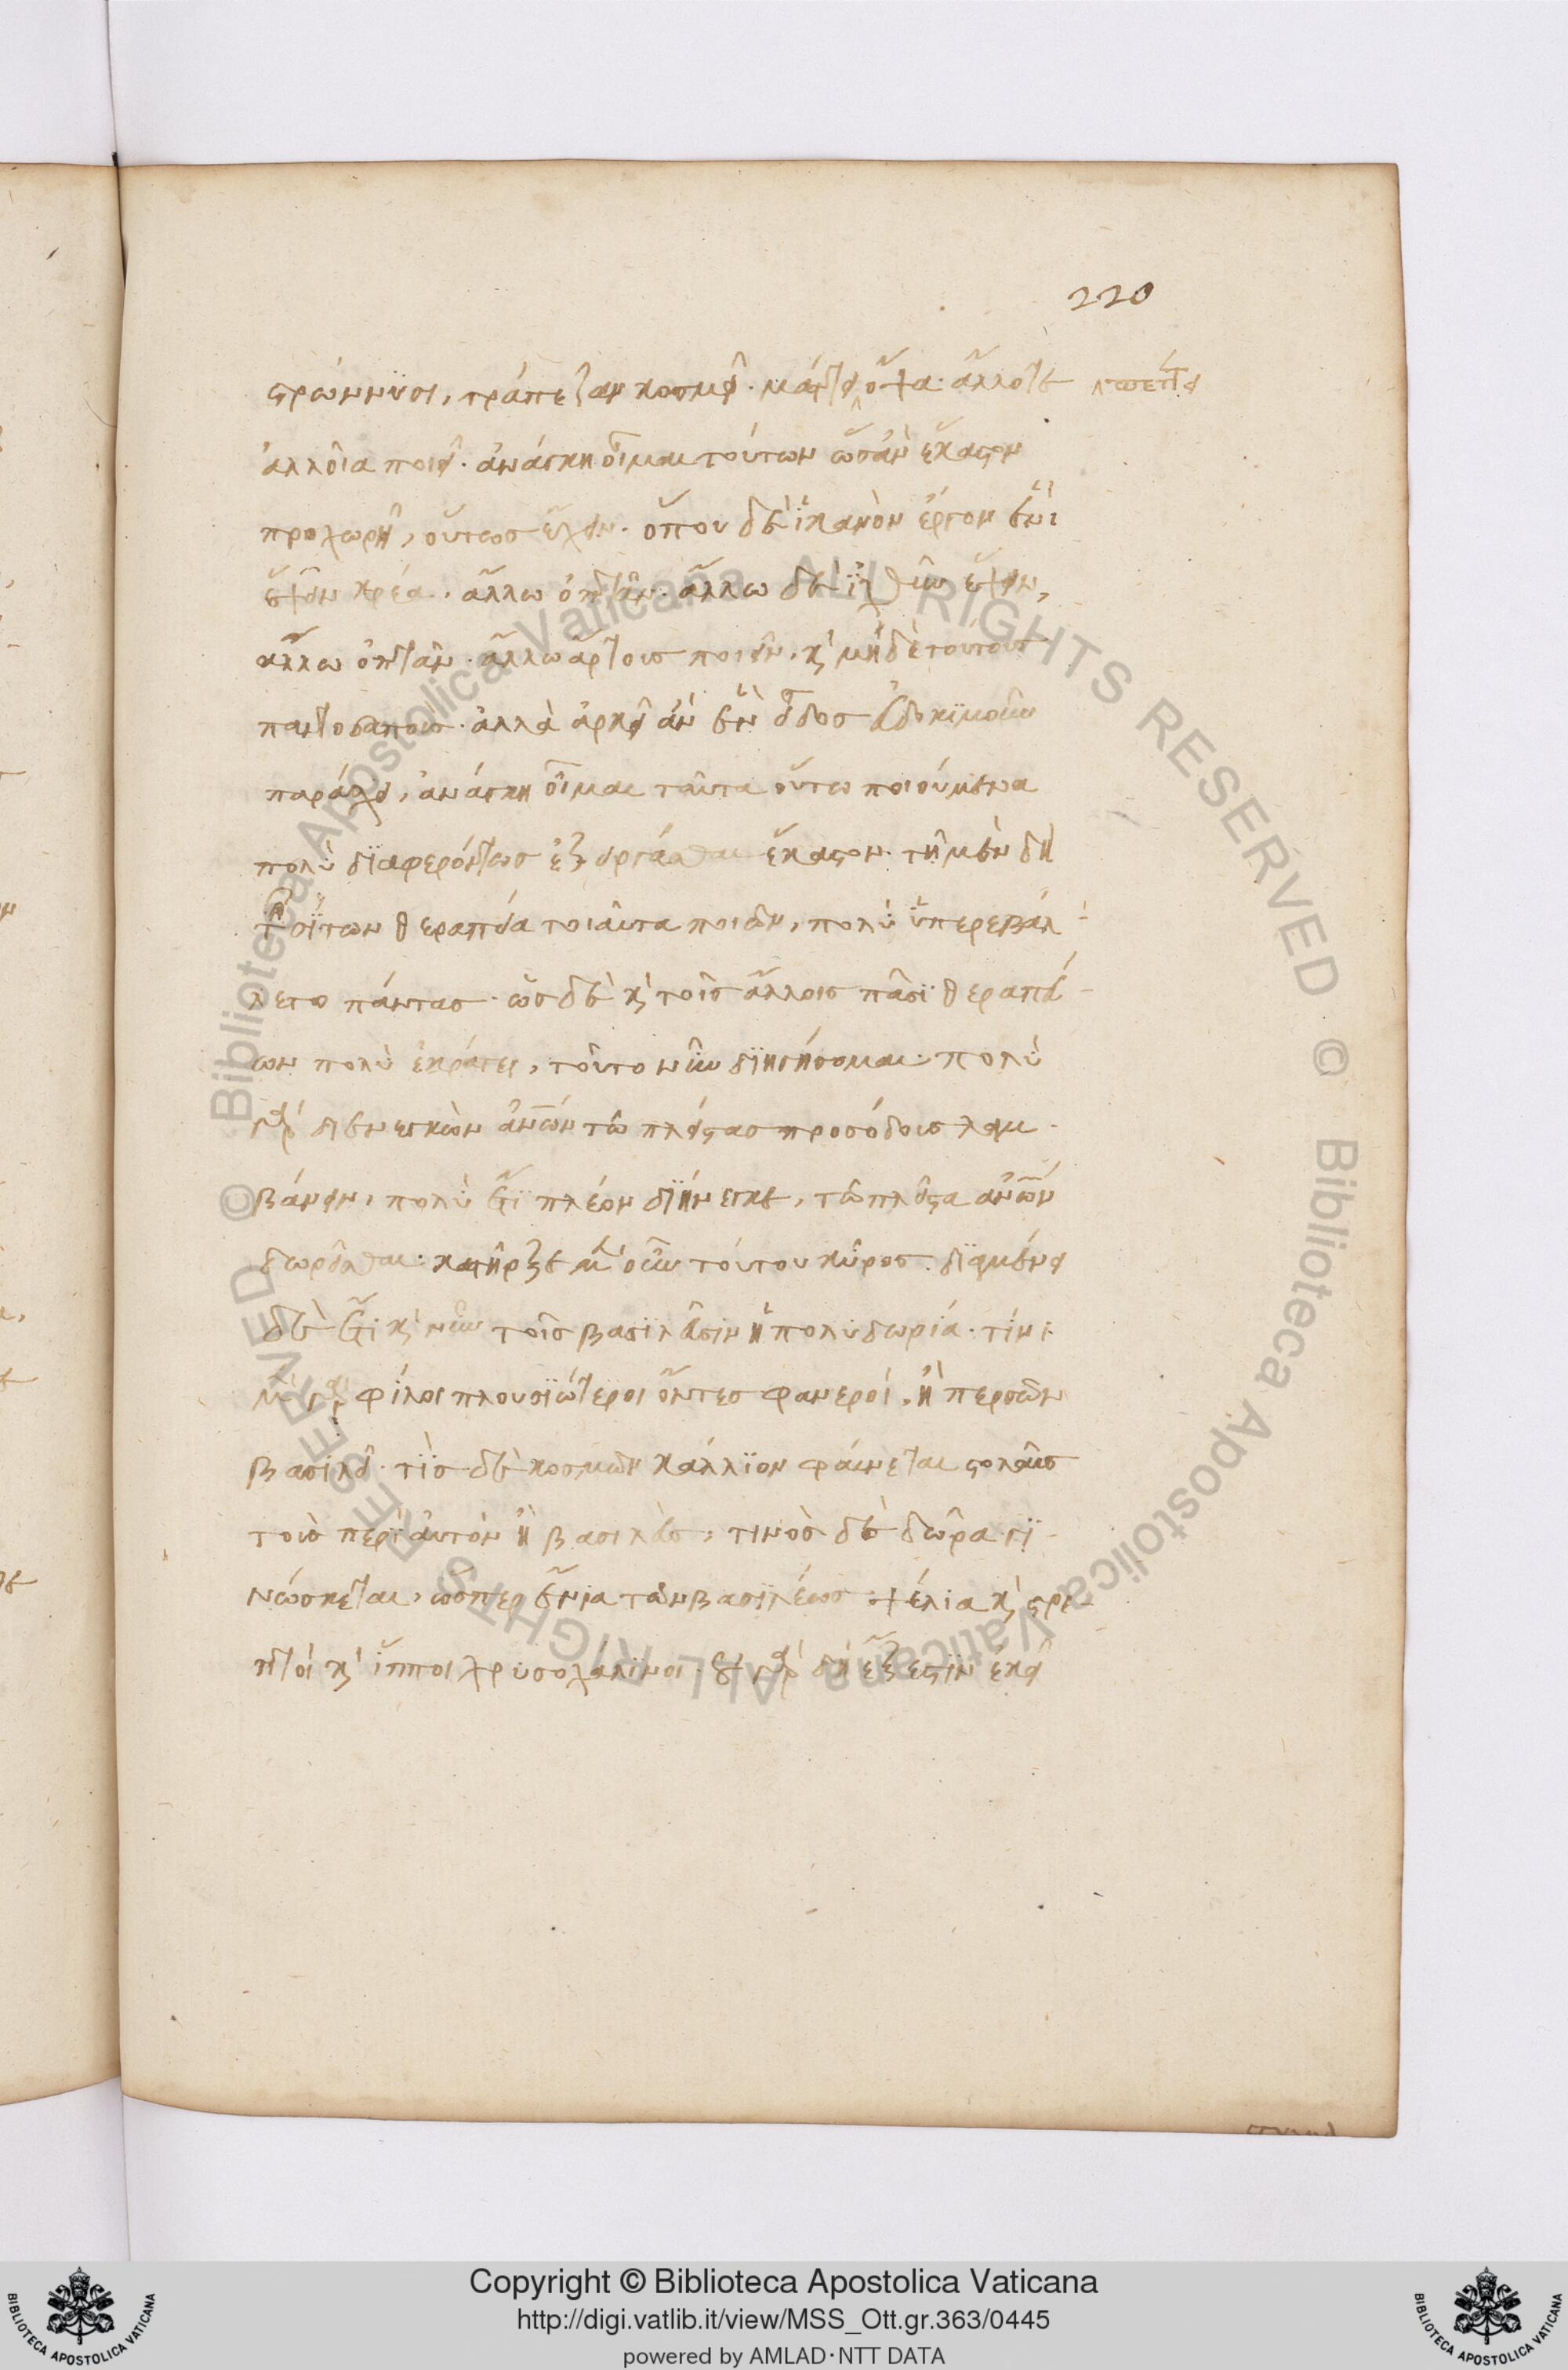 220
στρώννυσι, τράπεζαν κοσμεῖ. μάττει ὄψα· ἄλλοτε πέττει
ἀλλοῖα ποιεῖ. ἀνάγκη οἶμαι τούτων ὡς ἂν ἕκαστον
προχωρῇ, οὕτως ἔχειν. ὅπου δὲ ἱκανὸν ἔργον ἑνὶ
ἕψειν κρέα. ἄλλω ὀπτᾶν. ἄλλω δὲ ἰχθὺν ἕψειν,
ἄλλω ὀπτᾶν. ἄλλω ἄρτους ποιεῖν, καὶ μηδὲ τούτους
παντοδαποὺς. ἀλλὰ ἀρκεῖ ἂν ἓν εἶδος εὐδοκιμοῦν
παρέχει, ἀνάγκη οἶμαι ταῦτα οὕτω ποιούμενα
πολὺ διαφερόντως ἐξειργάσθαι ἕκαστον. τῇ μὲν δὴ
τῶν σίτων θεραπεία τοιαῦτα ποιῶν, πολὺ ὑπερεβάλ-
λετο πάντας. ὡς δὲ καὶ τοῖς ἄλλοις πᾶσι θεραπεύ-
ων πολὺ ἐκράτει, τοῦτο νῦν διηγήσομαι. πολὺ
γὰρ διενεγκὼν ἀνθρώπων τῶ πλείστας προσόδους λαμ-
βάνειν, πολὺ ἔτι πλέον διήνεγκε, τῶ πλεῖστα ἀνθρώπων
δωρεῖσθαι. κατῆρξε μὲν οὖν τούτου κῦρος. διαμένει
δὲ ἔτι καὶ νῦν τοῖς βασιλεῦσιν ἡ πολυδωρία. τίνι
μὲν γὰρ φίλοι πλουσιώτεροι ὄντες φανεροί, ἢ περσῶν
βασιλεῖ. τίς δὲ κοσμῶν κάλλιον φαίνεται στολαῖς
τοὺς περὶ αὐτὸν ἢ βασιλεύς, τινὸς δὲ δῶρα γι-
νώσκεται, ὥσπερ ἔνια τῶν βασιλέως. ψέλια καὶ στρε-
πτοί καὶ ἵπποι χρυσοχάλινοι. οὐ γὰρ δὴ ἔξεστιν ἐκεῖ
Copyright © Biblioteca Apostolica Vaticana
http://digi.vatlib.it/view/MSS_Ott.gr.363/0445
powered by AMLAD·NTT DATA